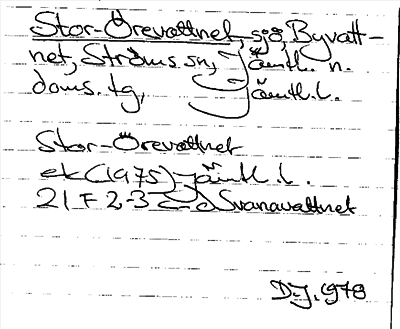 Stor-Örevattnet, sjö, Byvatt-
net, Ströms. sn, Jämtl. n.
doms. tg, Jämtl. l.
Stor-Örevattnet
ek (1975) Jämtl. l.
21 F 2-3 c-d Svanavattnet
D.J. 1978